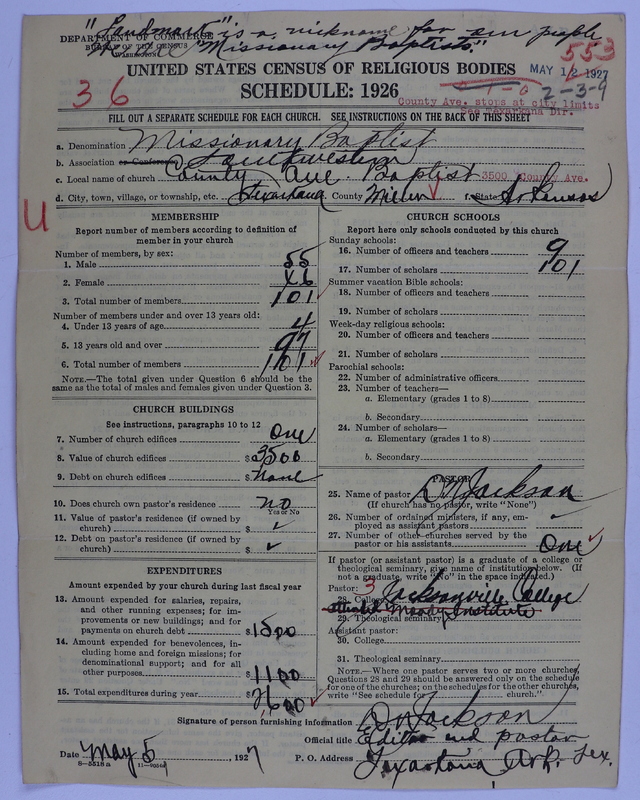 "Landmark" is a nickname for our people
"Missionary Baptists."
DEPARTMENT OF COMMERCE
BUREAU OF THE CENSUS
WASHINGTON
553
MAY 12 1927
UNITED STATES CENSUS OF RELIGIOUS BODIES
SCHEDULE: 1926
36
1-0
2-3-9
County Ave. stops at city limits
See Texarkana Dir.
FILL OUT A SEPARATE SCHEDULE FOR EACH CHURCH. SEE INSTRUCTIONS ON THE BACK OF THIS SHEET
a. Denomination Missionary Baptist
b. Association or Conference Southwestern
c. Local name of church County Ave. Baptist 3500 County Ave.
d. City, town, village, or township, etc. Texarkana County Miller State Arkansas
U
MEMBERSHIP
Report number of members according to definition of
member in your church
Number of members, by sex:
1. Male 55
2. Female 46
3. Total number of members 101
Number of members under and over 13 years old:
4. Under 13 years of age 4
5. 13 years old and over 97
6. Total number of members 101
NOTE.—The total given under Question 6 should be the
same as the total of males and females given under Question 3.
CHURCH BUILDINGS
See instructions, paragraphs 10 to 12
7. Number of church edifices One
8. Value of church edifices $ 3500
9. Debt on church edifices $ None
10. Does church own pastor's residence no
Yes or No
11. Value of pastor's residence (if owned by
church) $ ✓
12. Debt on pastor's residence (if owned by
church) $ ✓
EXPENDITURES
Amount expended by your church during last fiscal year
13. Amount expended for salaries, repairs,
and other running expenses; for im-
provements or new buildings; and for
payments on church debt $ 1500
14. Amount expended for benevolences, in-
cluding home and foreign missions; for
denominational support; and for all
other purposes $ 1100
15. Total expenditures during year $ 2600
CHURCH SCHOOLS
Report here only schools conducted by this church
Sunday schools:
16. Number of officers and teachers 9
17. Number of scholars 101
Summer vacation Bible schools:
18. Number of officers and teachers
19. Number of scholars
Week-day religious schools:
20. Number of officers and teachers
21. Number of scholars
Parochial schools:
22. Number of administrative officers
23. Number of teachers—
a. Elementary (grades 1 to 8)
b. Secondary
24. Number of scholars—
a. Elementary (grades 1 to 8)
b. Secondary
PASTOR
25. Name of pastor D N Jackson
(If church has no pastor, write "None")
26. Number of ordained ministers, if any, em-
ployed as assistant pastors
27. Number of other churches served by the
pastor or his assistants One
If pastor (or assistant pastor) is a graduate of a college or
theological seminary, give name of institution below. (If
not a graduate, write "No" in the space indicated.)
Pastor: 3
28. College Jacksonville College
Moody Institute
29. Theological seminary
Assistant pastor:
30. College
31. Theological seminary
NOTE.—Where one pastor serves two or more churches,
Questions 28 and 29 should be answered only on the schedule
for one of the churches; on the schedules for the other churches,
write "See schedule for church."
Signature of person furnishing information D N Jackson
Official title Editor and pastor
Date May 5, 1927
P. O. Address Texarkana Ark.-Tex.
S-5518 a